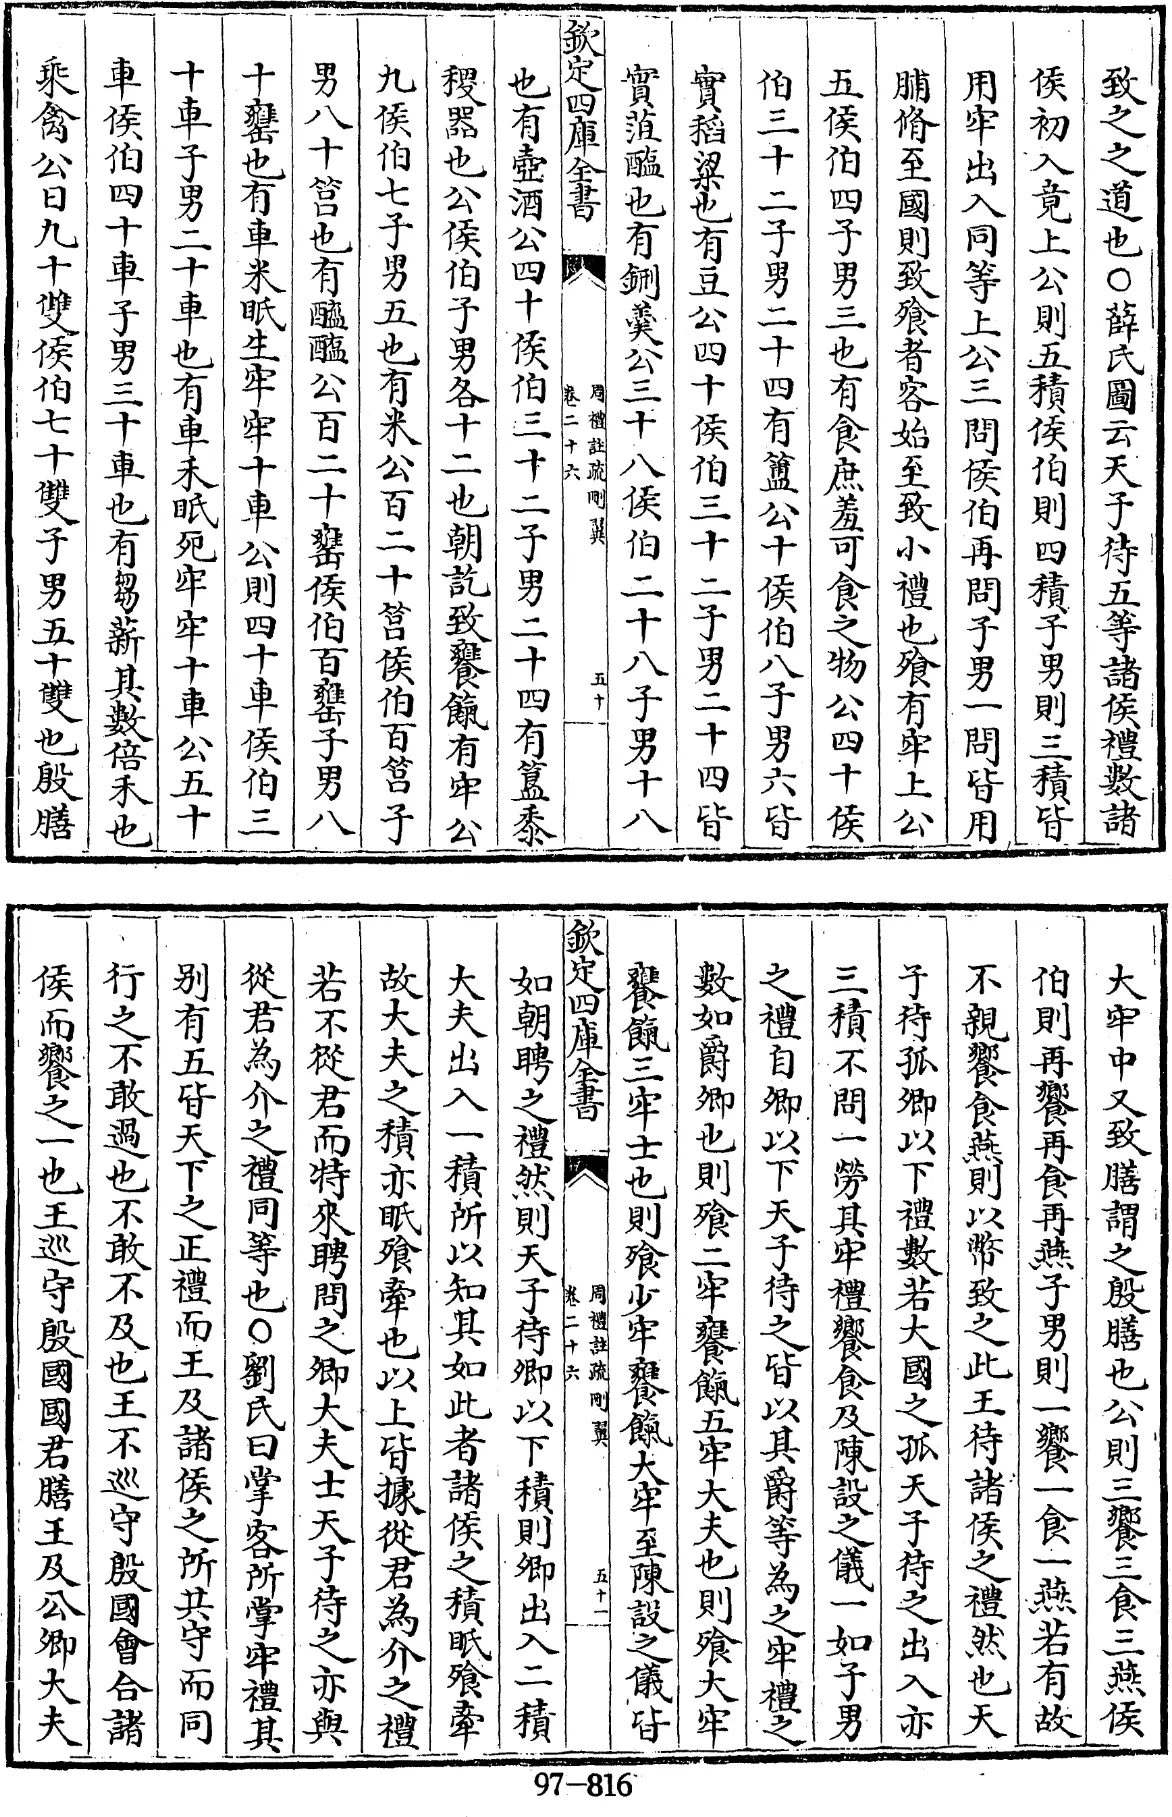 致之之道也○薛氏圖云天子待五等諸侯禮數諸
侯初入竟上公則五積侯伯則四積子男則三積皆
用牢出入同等上公三問侯伯再問子男一問皆用
脯脩至國則致飱者客始至致小禮也飱有牢上公
五侯伯四子男三也有食庶羞可食之物公四十侯
伯三十二子男二十四有簠公十侯伯八子男六皆
實稻粱也有豆公四十侯伯三十二子男二十四皆
實菹醢也有鉶羮公三十八侯伯二十八子男十八
欽定四庫全書
周禮註疏刪翼
卷二十六
五十
也有壺酒公四十侯伯三十二子男二十四有簋黍
稷器也公侯伯子男各十二也朝訖致饔餼有牢公
九侯伯七子男五也有米公百二十筥侯伯百筥子
男八十筥也有醯醢公百二十罋侯伯百罋子男八
十罋也有車米眂生牢牢十車公則四十車侯伯三
十車子男二十車也有車禾眂死牢牢十車公五十
車侯伯四十車子男三十車也有芻薪其數倍禾也
乘禽公日九十雙侯伯七十雙子男五十雙也殷膳
大牢中又致膳謂之殷膳也公則三饗三食三燕侯
伯則再饗再食再燕子男則一饗一食一燕若有故
不親饗食燕則以幣致之此王待諸侯之禮然也天
子待孤卿以下禮數若大國之孤天子待之出入亦
三積不問一勞其牢禮饗食及陳設之儀一如子男
之禮自卿以下天子待之皆以其爵等為之牢禮之
數如爵卿也則飱二牢饔餼五牢大夫也則飱大牢
饔餼三牢士也則飱少牢饔餼大牢至陳設之儀皆
欽定四庫全書
周禮註疏刪翼
卷二十六
五十一
如朝聘之禮然則天子待卿以下積則卿出入二積
大夫出入一積所以知其如此者諸侯之積眂飱牽
故大夫之積亦眂飱牽也以上皆據從君為介之禮
若不從君而特來聘問之卿大夫士天子待之亦與
從君為介之禮同等也○劉氏曰掌客所掌牢禮其
别有五皆天下之正禮而王及諸侯之所共守而同
行之不敢過也不敢不及也王不巡守殷國會合諸
侯而饗之一也王巡守殷國國君膳王及公卿大夫
97-816